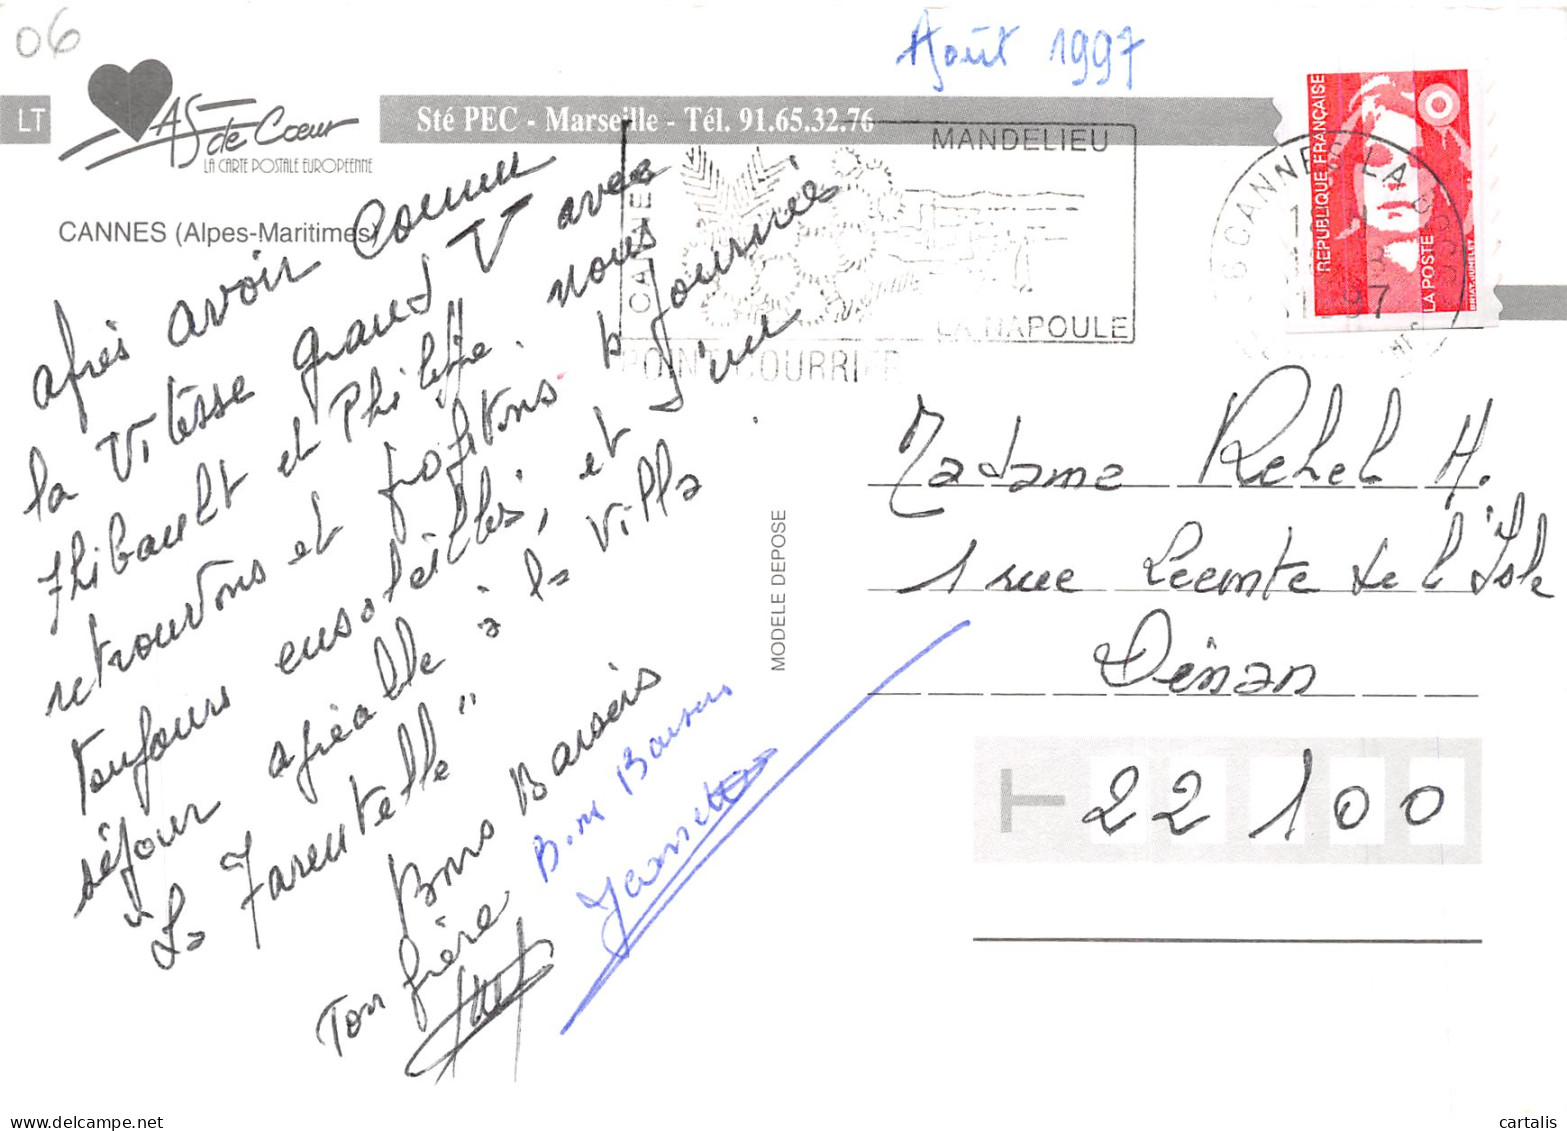 06
Août 1997
LT
AS de Cœur
LA CARTE POSTALE EUROPÉENNE
Sté PEC - Marseille - Tél. 91.65.32.76
CANNES (Alpes-Maritimes)
MANDELIEU
LA NAPOULE
POINT COURRIER
CANNES LA
97
RÉPUBLIQUE FRANÇAISE
LA POSTE
BRIAT-JUMELET
après avoir connu
la vitesse grand V avec
Thibault et Philippe. nous
retrouvons et profitons b journées
toujours ensoleillés, et d'un
séjour agréable à la villa
"La Tarentelle"
Bons Baisers
Ton frère
Bons Baisers
Jeannette
MODELE DEPOSE
Madame Rehel H.
1 rue Leconte de l'Isle
Dinan
22100
cartalis